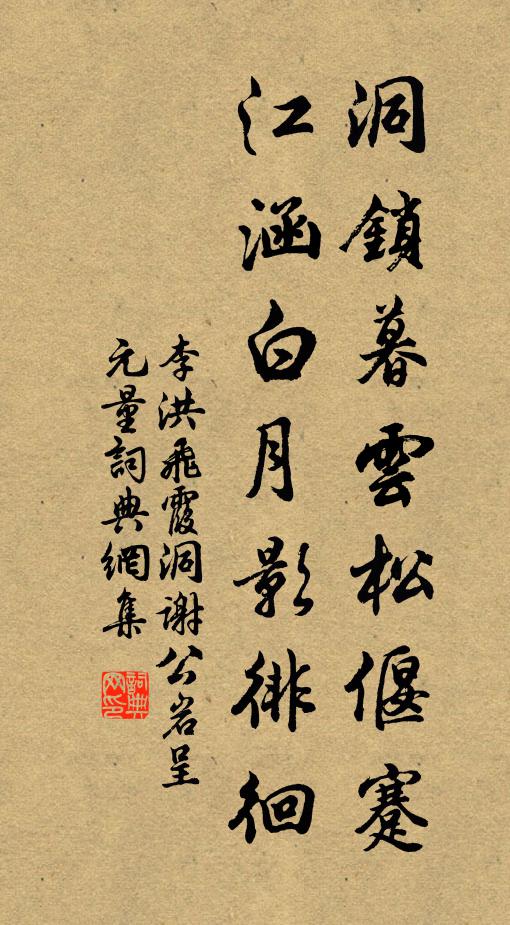 洞鎖暮雲松偃蹇
江涵白月影徘徊
李洪飛霞洞謝公岩呈
元量詞典網集
詞典網印